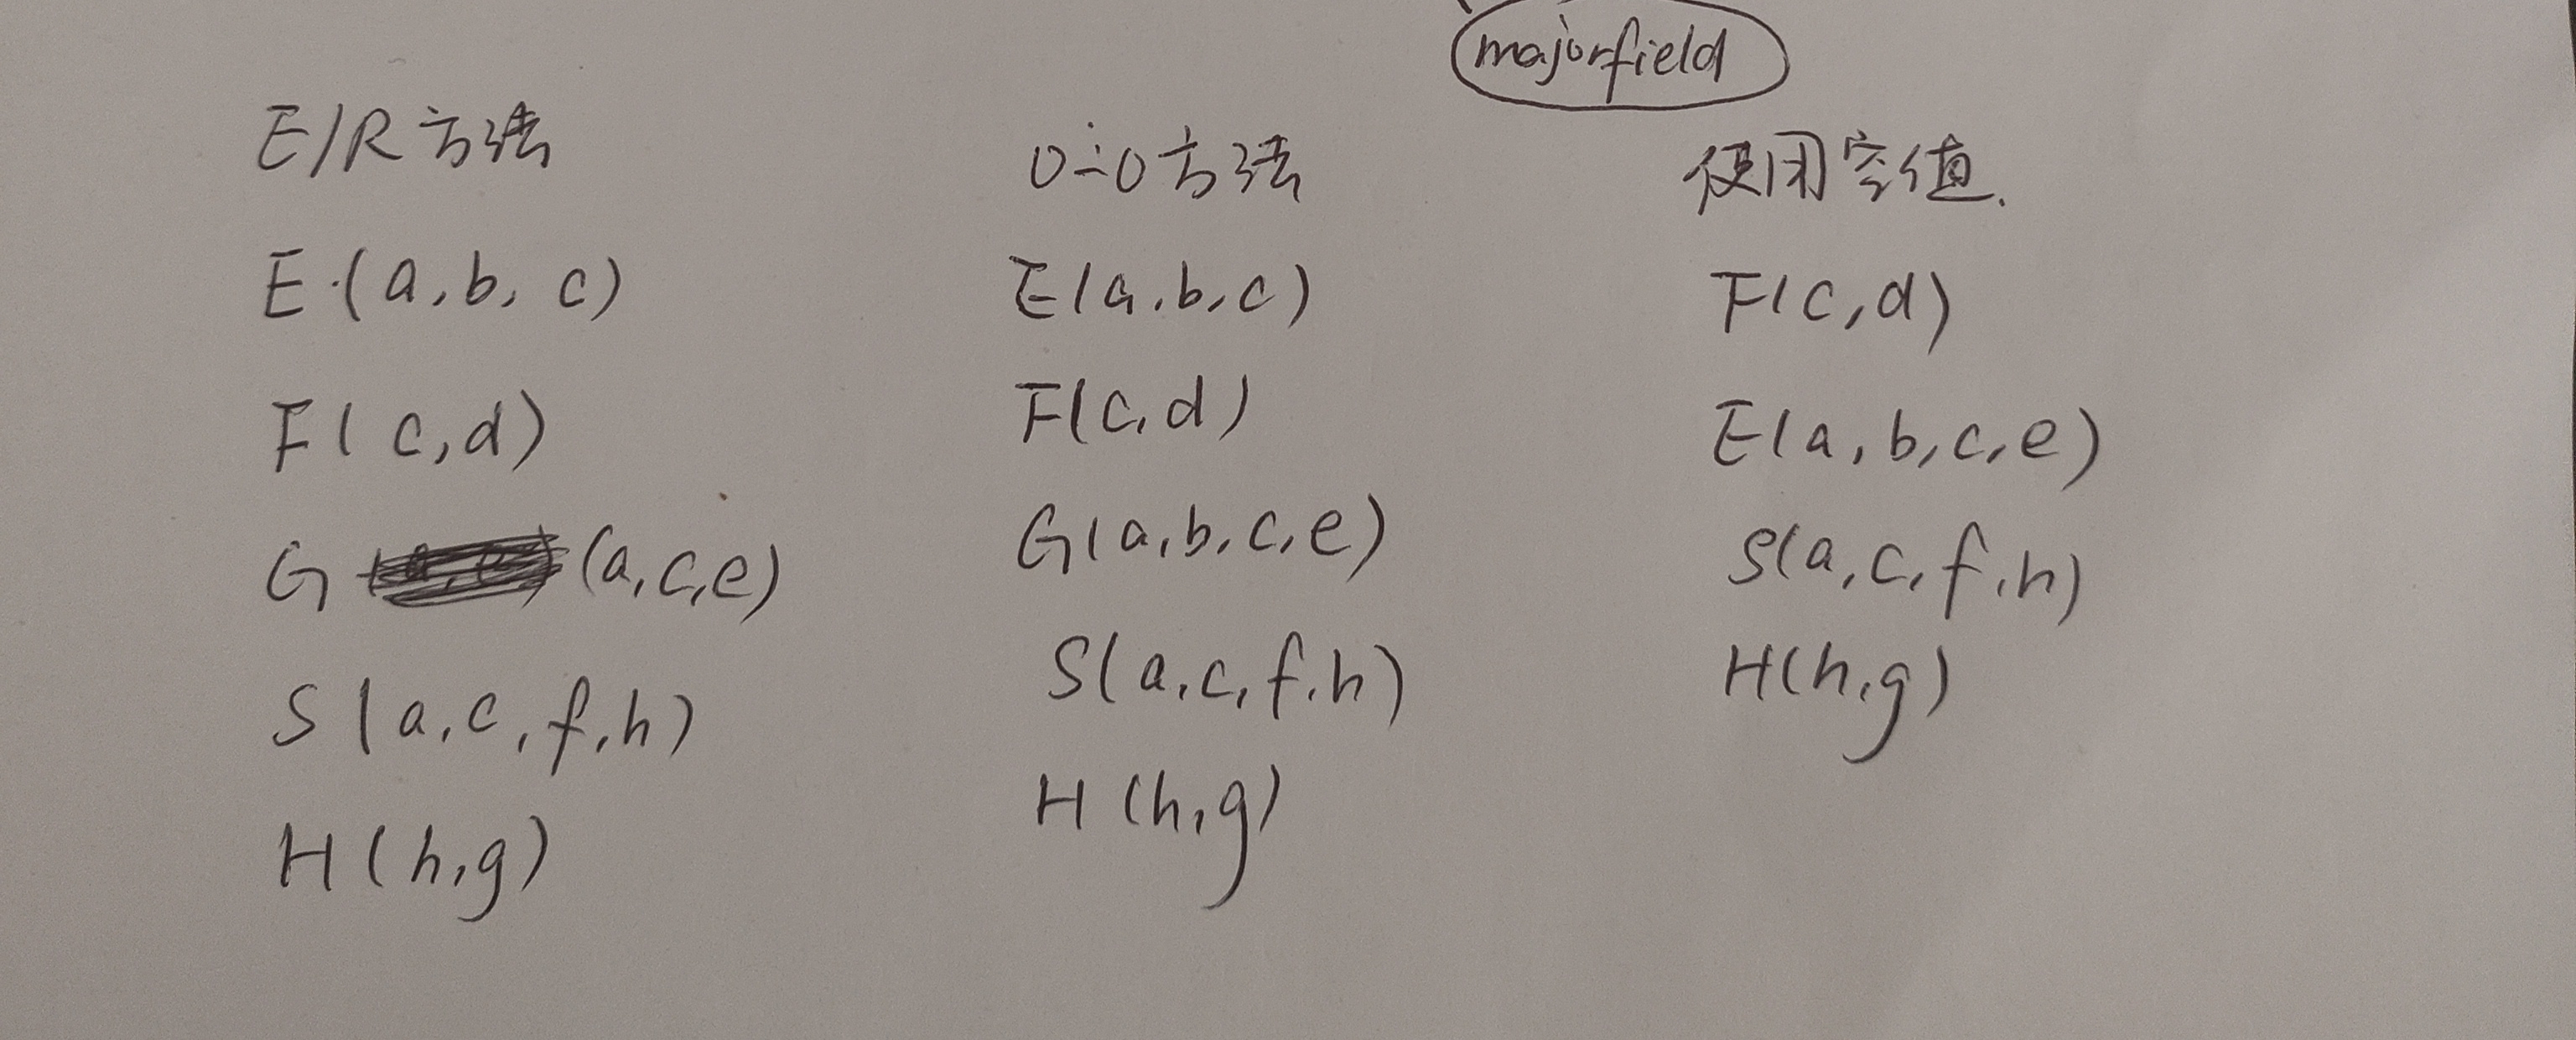 majorfield
E/R方法
E(a,b,c)
F(c,d)
G (a,c,e)
S(a,c,f,h)
H(h,g)
O-O方法
E(a,b,c)
F(c,d)
G(a,b,c,e)
S(a,c,f,h)
H(h,g)
使用空值.
F(c,d)
E(a,b,c,e)
S(a,c,f,h)
H(h,g)